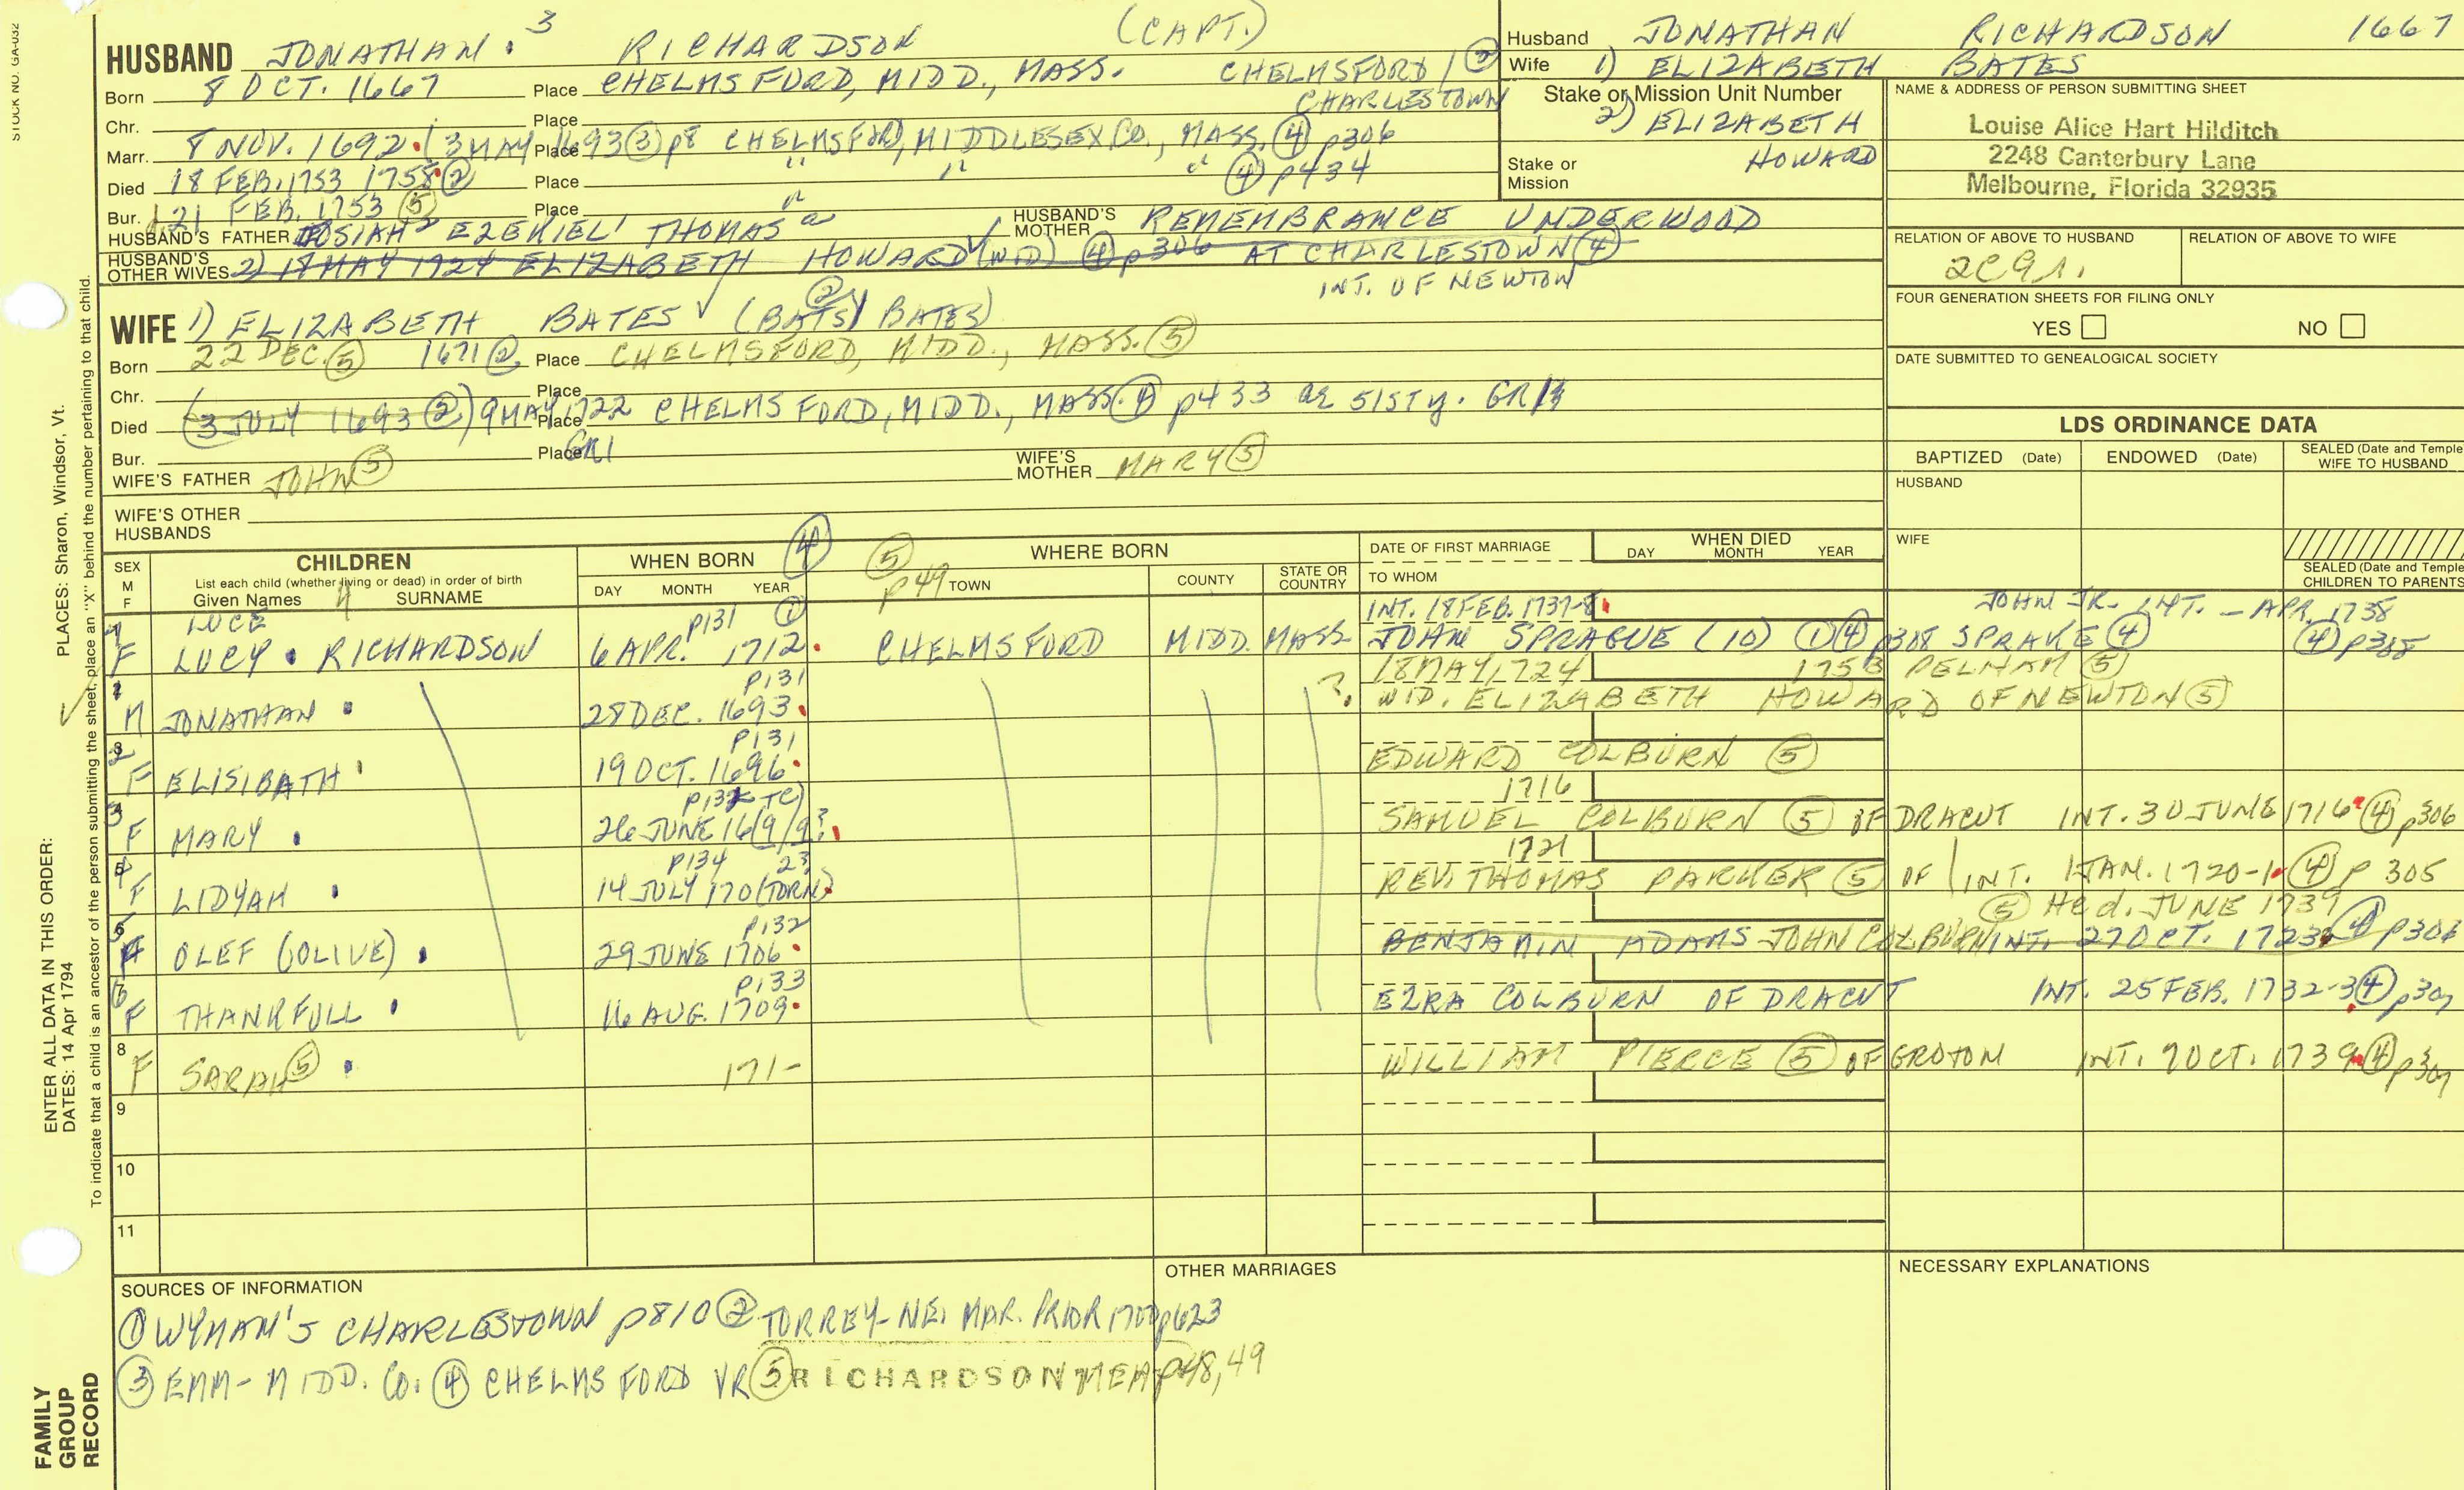 STOCK NO. GA-032
HUSBAND JONATHAN 3 RICHARDSON (CAPT.)
Born 8 OCT. 1667 Place CHELMSFORD, MIDD., MASS. CHELMSFORD / ②
CHARLESTOWN
Chr. Place
Marr. 8 NOV. 1692 (3 MAY 1693 ③ p8 Place CHELMSFORD, MIDDLESEX CO., MASS. ④ p306
Died 18 FEB. 1753 1758 ② Place " " " ④ p434
Bur. 21 FEB. 1753 ⑤ Place "
HUSBAND'S FATHER JOSIAH 2 EZEKIEL 1 THOMAS a
HUSBAND'S MOTHER REMEMBRANCE UNDERWOOD
HUSBAND'S OTHER WIVES 2) 18 MAY 1724 ELIZABETH HOWARD (WID) ④ p306 AT CHARLESTOWN ④
INT. OF NEWTON
WIFE 1) ELIZABETH BATES (BATS/ BATES) ②
Born 22 DEC. ⑤ 1671 ② Place CHELMSFORD, MIDD., MASS. ⑤
Chr. Place
Died (3 JULY 1693 ②) 9 MAY 1722 Place CHELMSFORD, MIDD., MASS. ④ p433 ae 51st y. GR1
Bur. Place GR1
WIFE'S FATHER JOHN ⑤
WIFE'S MOTHER MARY ⑤
WIFE'S OTHER HUSBANDS
Husband JONATHAN RICHARDSON 1667
Wife 1) ELIZABETH BATES
Stake or Mission Unit Number
2) ELIZABETH
HOWARD
Stake or Mission
NAME & ADDRESS OF PERSON SUBMITTING SHEET
Louise Alice Hart Hilditch
2248 Canterbury Lane
Melbourne, Florida 32935
RELATION OF ABOVE TO HUSBAND
2C9r.
RELATION OF ABOVE TO WIFE
FOUR GENERATION SHEETS FOR FILING ONLY
YES NO
DATE SUBMITTED TO GENEALOGICAL SOCIETY
LDS ORDINANCE DATA
BAPTIZED (Date) ENDOWED (Date) SEALED (Date and Temple WIFE TO HUSBAND
HUSBAND
WIFE
SEALED (Date and Temple CHILDREN TO PARENTS
SEX M F
CHILDREN
List each child (whether living or dead) in order of birth
Given Names SURNAME
WHEN BORN ④
DAY MONTH YEAR
⑤ p49 WHERE BORN
TOWN COUNTY STATE OR COUNTRY
DATE OF FIRST MARRIAGE
TO WHOM
WHEN DIED
DAY MONTH YEAR
LUCE P131 ① INT. 18 FEB. 1737-8 JOHN JR. INT. — APR. 1738
F LUCY RICHARDSON 6 APR. 1712 CHELMSFORD MIDD. MASS. JOHN SPRAGUE (10) ① ④ p308 SPRAKE ④ ④ p308
P131 18 MAY 1724 1753 PELHAM ⑤
M JONATHAN 28 DEC. 1693 ? WID. ELIZABETH HOWARD OF NEWTON ⑤
P131
F ELISIBATH 19 OCT. 1696 EDWARD COLBURN ⑤
P132 TC) 1716
F MARY 26 JUNE 16(9/9? SAMUEL COLBURN ⑤ OF DRACUT INT. 30 JUNE 1716 ④ p306
P134 23 1721
F LIDYAH 14 JULY 170(TORN) REV. THOMAS PARKER ⑤ OF INT. 1 JAN. 1720-1 ④ P 305
P132 ⑤ He d. JUNE 1739
F OLEF (OLIVE) 29 JUNE 1706 BENJAMIN ADAMS JOHN COLBURN INT. 27 OCT. 1723 ④ p306
P133
F THANKFULL 16 AUG. 1709 EZRA COLBURN OF DRACUT INT. 25 FEB. 1732-3 ④ p307
8 F SARAH ⑤ 171- WILLIAM PIERCE ⑤ OF GROTON INT. 9 OCT. 1739 ④ p307
9
10
11
SOURCES OF INFORMATION
① WYMAN'S CHARLESTOWN p810 ② TORREY-NE. MAR. PRIOR 1700 p623
③ EMM-MIDD. CO. ④ CHELMSFORD VR ⑤ RICHARDSON MEM p48, 49
OTHER MARRIAGES
NECESSARY EXPLANATIONS
FAMILY GROUP RECORD
ENTER ALL DATA IN THIS ORDER:
DATES: 14 Apr 1794
PLACES: Sharon, Windsor, Vt.
To indicate that a child is an ancestor of the person submitting the sheet, place an "X" behind the number pertaining to that child.